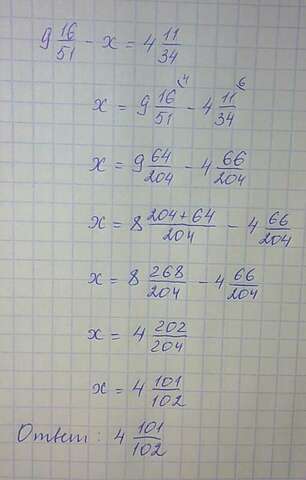 9 16/51 - x = 4 11/34
x = 9 16/51 ⁴ - 4 11/34 ⁶
x = 9 64/204 - 4 66/204
x = 8 204+64/204 - 4 66/204
x = 8 268/204 - 4 66/204
x = 4 202/204
x = 4 101/102
Ответ: 4 101/102